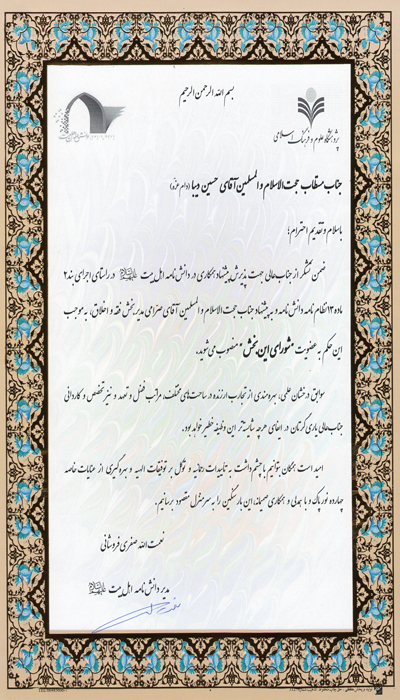 بسم الله الرحمن الرحیم
پژوهشگاه علوم و فرهنگ اسلامی
جناب مستطاب حجت الاسلام والمسلمین آقای حسین دیبا (دام عزّه)
باسلام و تقدیم احترام؛
ضمن تشکر از جنابعالی جهت پذیرش پیشنهاد همکاری در دانش نامه اهل بیت در راستای اجرای بند ۲
ماده ۱۳ نظام نامه دانش نامه و به پیشنهاد جناب حجت الاسلام والمسلمین آقای ضرامی مدیر بخش فقه و اخلاق، به موجب
این حکم به عضویت "شورای این بخش" منصوب می شوید.
سوابق درخشان علمی، بهره مندی از تجارب ارزنده در ساحت های مختلف، مراتب فضل و تعهد و نیز تخصص و کاردانی
جنابعالی یاری گرتان در ایفای هرچه شایسته تر این وظیفه خطیر خواهد بود.
امید است همگان بتوانیم با چشم داشت به تأییدات رحمانه و توکل بر توفیقات الهیه و بهره گیری از عنایات خاصه
چهارده نور پاک و با همدلی و همکاری صمیمانه، این بار سنگین را به سر منزل مقصود برسانیم.
نعمت الله صفری فروشانی
مدیر دانش نامه اهل بیت